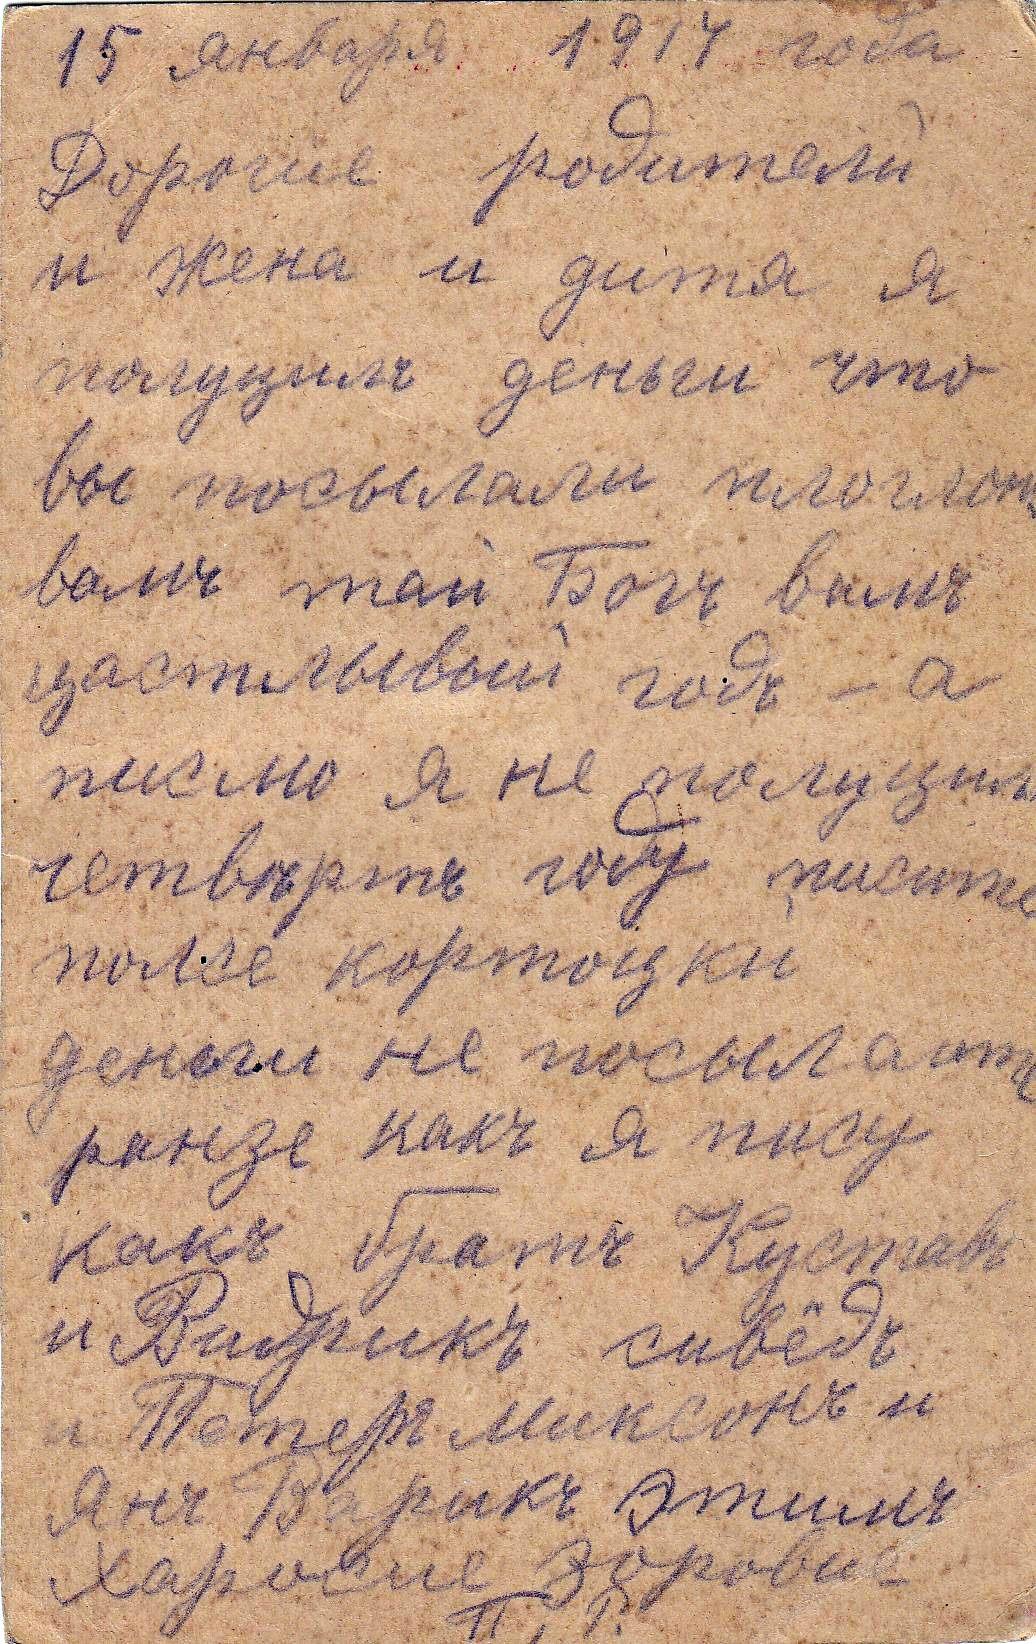 15 января 1917 года
Дорогие родители
и жена и дитя я
полуцилъ деньги что
вы посылали
вамъ тай Богъ вамъ
цастлывый годъ - а
писмо я не полуцилъ
четвѣрть году писите
полсе кортоцки
деньги не посылаить
ранзе какъ я пису
какъ братъ Куставъ
и Видрикъ сивёдъ
и Петеръ Миксонъ и
Янъ Варикъ этимъ
харосие здоровие
П. Р.